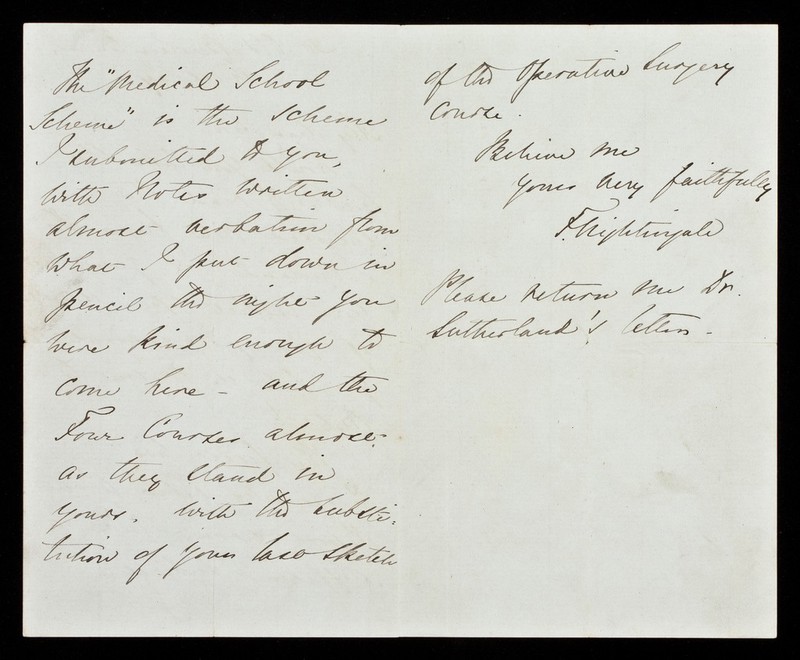 The "Medical School
Scheme" is the scheme
I submitted to you,
with Notes written
almost verbatim from
what I put down in
pencil the night you
were kind enough to
come here - and the
Four Courses almost
as they stand in
yours, with the substi-
tution of your last sketch
of the Operative Surgery
Course.
Believe me
yours very faithfully
F. Nightingale
Please return me Dr.
Sutherland's letters -